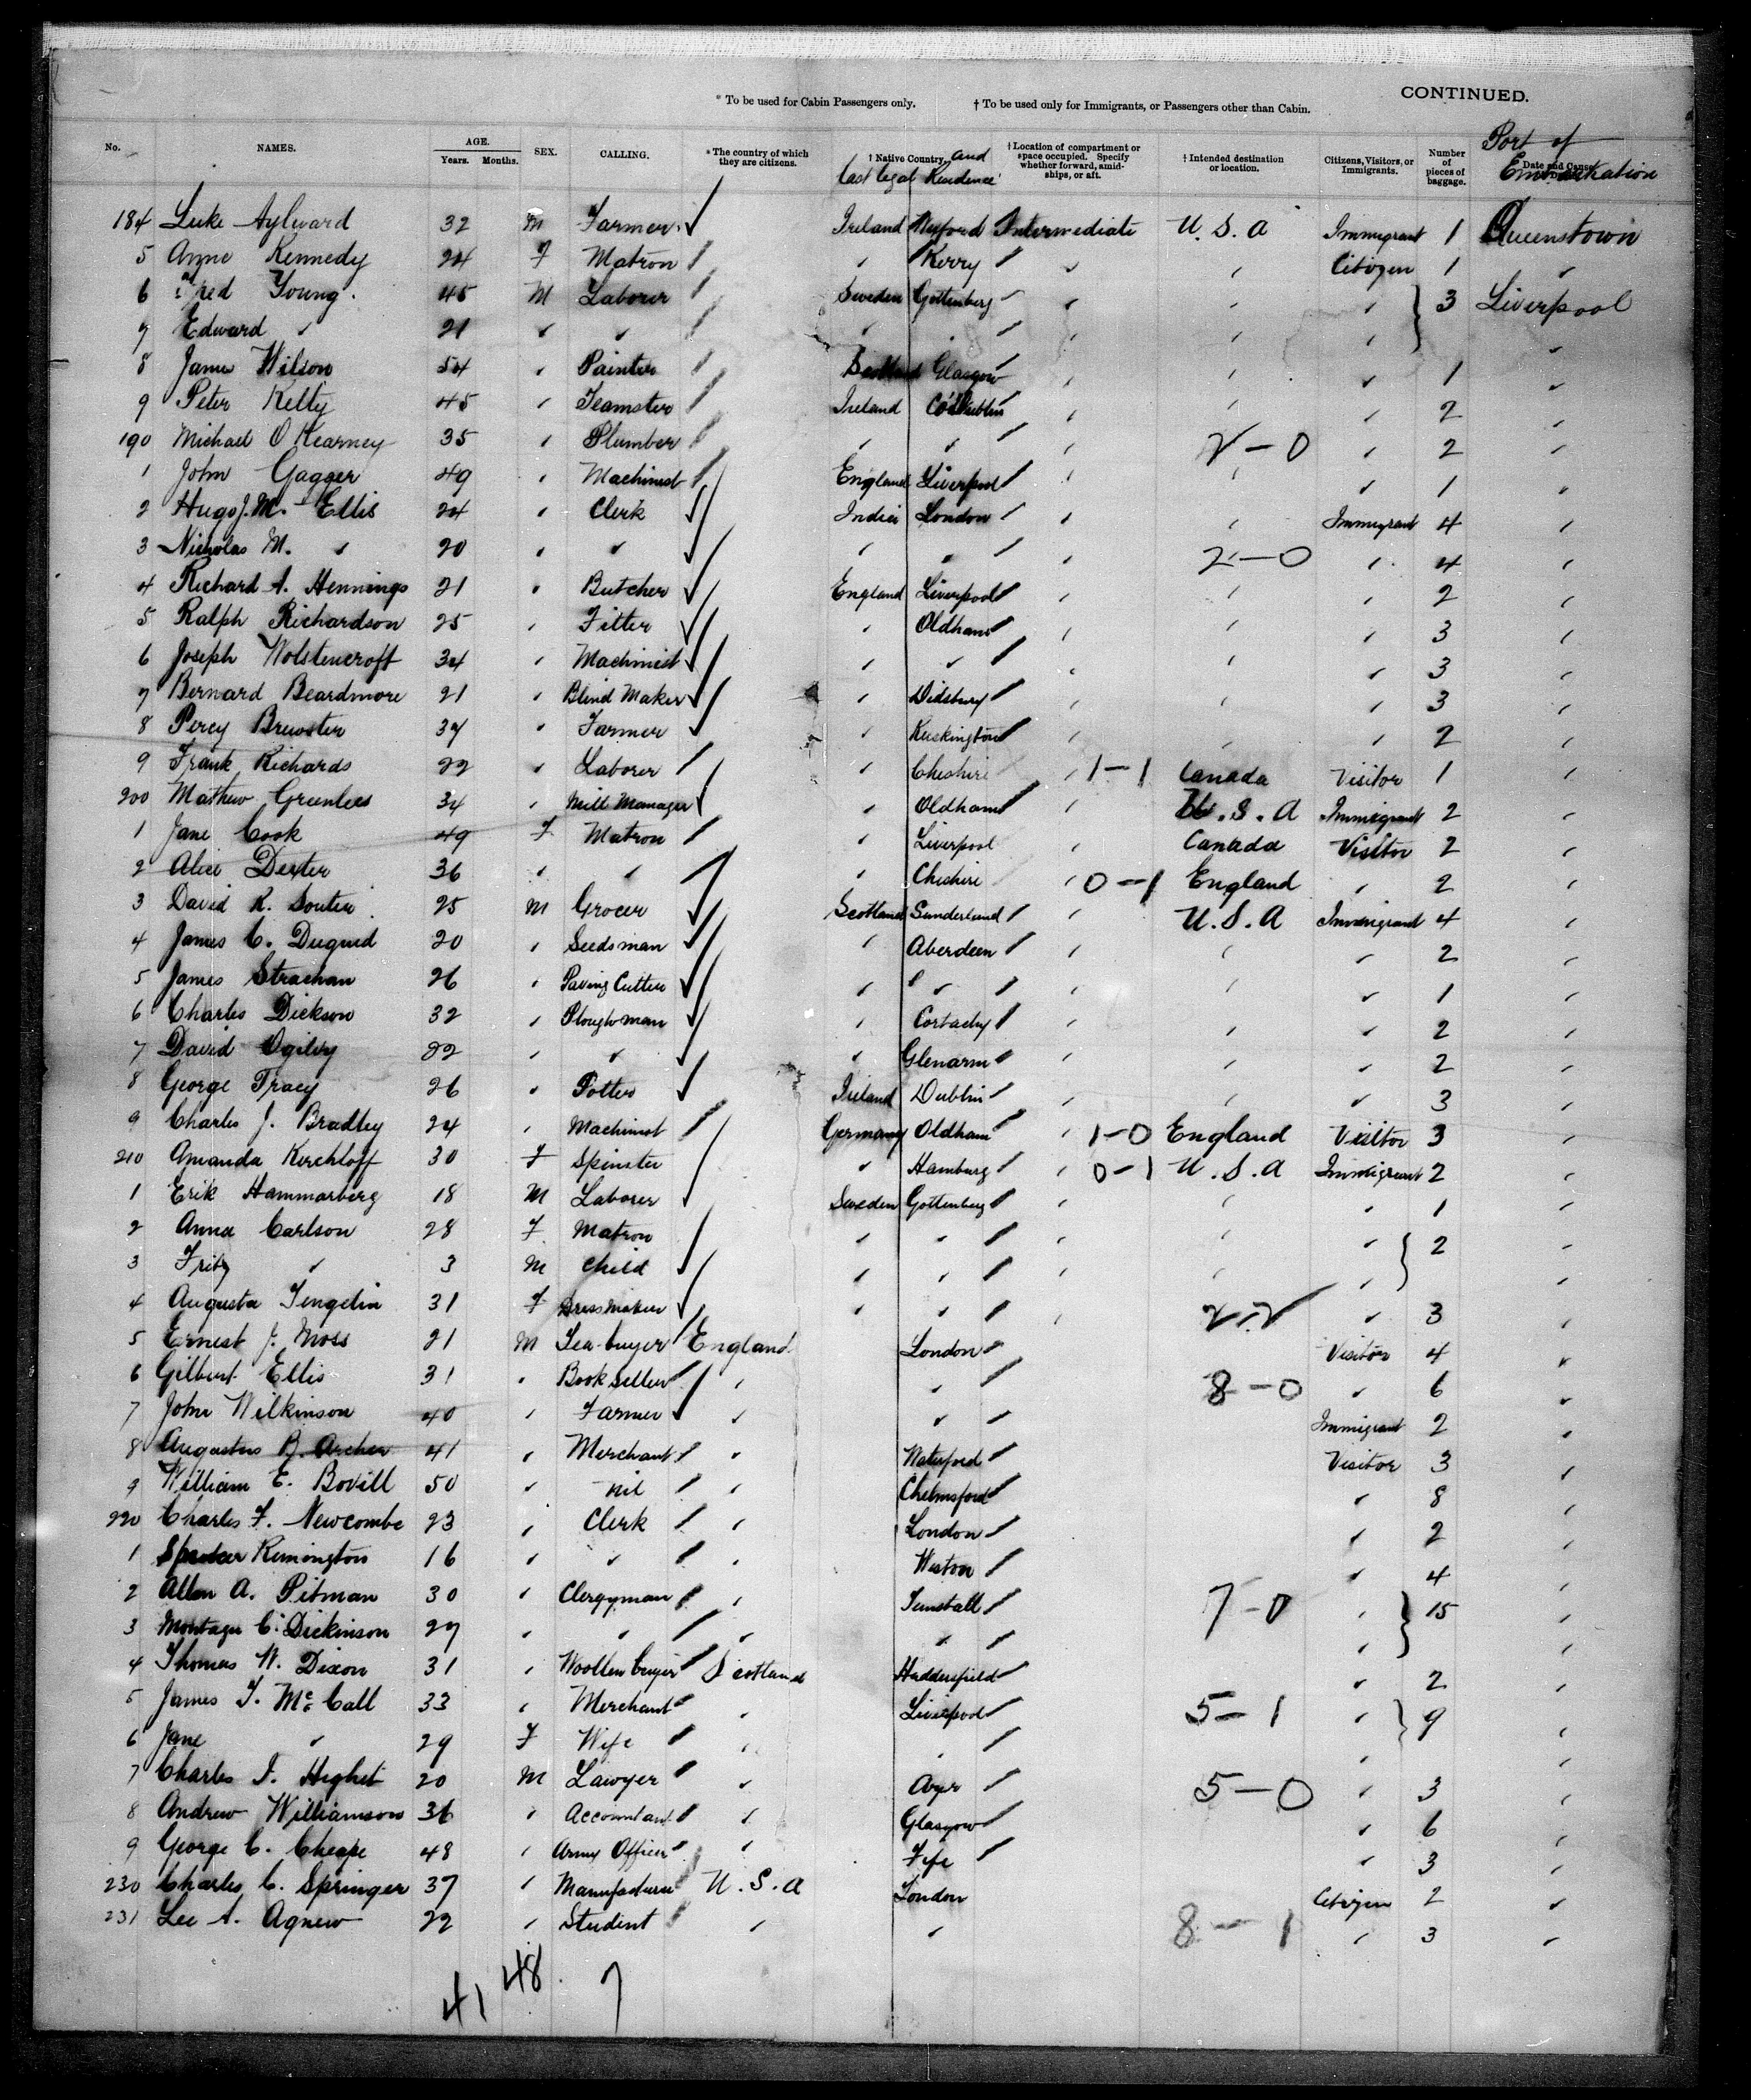 CONTINUED.
* To be used for Cabin Passengers only. † To be used only for Immigrants, or Passengers other than Cabin.
No. NAMES. AGE. Years. Months. SEX. CALLING. *The country of which they are citizens. † Native Country, and last legal Residence †Location of compartment or space occupied. Specify whether forward, amidships, or aft. †Intended destination or location. Citizens, Visitors, or Immigrants. Number of pieces of baggage. Port of Embarkation
184 Luke Aylward 32 M Farmer Ireland Wexford Intermediate U.S.A Immigrant 1 Queenstown
5 Anne Kennedy 24 F Matron " Kerry " " Citizen 1 "
6 Young 45 M Laborer Sweden Gottenberg " " " 3 Liverpool
7 Edward " 21 " " " " " " " "
8 James Wilson 54 " Painter Scotland Glasgow " " " 1 "
9 Peter Kelly 45 " Teamster Ireland Co Dublin " " " 2 "
190 Michael O Kearney 35 " Plumber " " " 2-0 " 2 "
1 John Gagger 49 " Machinist England Liverpool " " " 1 "
2 Hugo J. M. Ellis 24 " Clerk India London " " Immigrant 4 "
3 Nicholas M. " 20 " " " " " 2-0 " 4 "
4 Richard A. Hennings 21 " Butcher England Liverpool " " " 2 "
5 Ralph Richardson 25 " Fitter " Oldham " " " 3 "
6 Joseph Wolstencroft 34 " Machinist " " " " " 3 "
7 Bernard Beardmore 21 " Blind Maker " Didsbury " " " 3 "
8 Percy Brewster 37 " Farmer " Ruskington " " " 2 "
9 Frank Richards 22 " Laborer " Cheshire " 1-1 Canada Visitor 1 "
200 Mathew Greenlees 34 " Mill Manager " Oldham " U.S.A Immigrant 2 "
1 Jane Cook 49 F Matron " Liverpool " Canada Visitor 2 "
2 Alice Dexter 36 " " " Cheshire " 0-1 England " 2 "
3 David K. Souter 25 M Grocer Scotland Sunderland " U.S.A Immigrant 4 "
4 James C. Duguid 20 " Seedsman " Aberdeen " " " 2 "
5 James Strachan 26 " Paving Cutter " " " " " 1 "
6 Charles Dickson 32 " Ploughman " Cortachy " " " 2 "
7 David Ogilvy 22 " " " Glenarm " " " 2 "
8 George Tracy 26 " Potter Ireland Dublin " " " 3 "
9 Charles J. Bradley 24 " Machinist Germany Oldham " 1-0 England Visitor 3 "
210 Amanda Kirchloff 30 F Spinster " Hamburg " 0-1 U.S.A Immigrant 2 "
1 Erik Hammarberg 18 M Laborer Sweden Gottenberg " " " 1 "
2 Anna Carlson 28 F Matron " " " " " 2 "
3 Fritz " 3 M Child " " " " " "
4 Augusta Tengelin 31 F Dressmaker " " " 2-2 " 3 "
5 Ernest J. Moss 21 M Tea-buyer England London Visitor 4 "
6 Gilbert Ellis 31 " Book Seller " " 8-0 " 6 "
7 John Wilkinson 40 " Farmer " " Immigrant 2 "
8 Augustus B. Archer 41 " Merchant " Waterford Visitor 3 "
9 William E. Bovill 50 " nil " Chelmsford " 8 "
220 Charles F. Newcombe 23 " Clerk " London " 2 "
1 Spencer Rimington 16 " " " Weston " 4 "
2 Allen A. Pitman 30 " Clergyman " Tunstall 7-0 " 15 "
3 Montagu C. Dickinson 27 " " " " " "
4 Thomas W. Dixon 31 " Woollen buyer Scotland Huddersfield " 2 "
5 James T. McCall 33 " Merchant " Liverpool 5-1 " 9 "
6 Jane " 29 F Wife " " " "
7 Charles I. Highet 20 M Lawyer " Ayr 5-0 " 3 "
8 Andrew Williamson 36 " Accountant " Glasgow " 6 "
9 George C. Cheape 48 " Army Officer " Fife " 3 "
230 Charles C. Springer 37 " Manufacturer U.S.A London Citizen 2 "
231 Lee A. Agnew 22 " Student " " 8-1 " 3 "
41 48 7